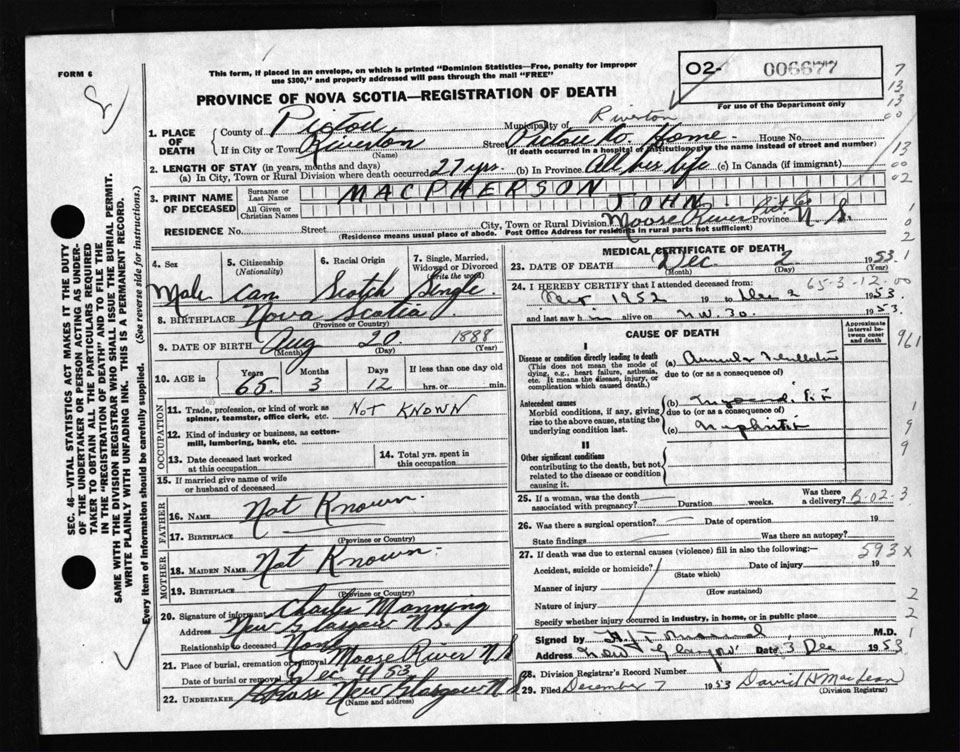 FORM 6
This form, if placed in an envelope, on which is printed "Dominion Statistics—Free, penalty for improper
use $300," and properly addressed will pass through the mail "FREE"
02- 006677
For use of the Department only
PROVINCE OF NOVA SCOTIA—REGISTRATION OF DEATH
7
13
13
00
13
00
02
1
0
2
1. PLACE OF DEATH
County of Pictou Municipality of Riverton
If in City or Town Riverton Street Pictou Co. Home House No.
(Name) (If death occurred in a hospital or institution, give the name instead of street and number)
2. LENGTH OF STAY (in years, months and days)
(a) In City, Town or Rural Division where death occurred 27 yrs (b) In Province All her life (c) In Canada (if immigrant)
3. PRINT NAME OF DECEASED
Surname or Last Name MACPHERSON
All Given or Christian Names JOHN
RESIDENCE No. Street City, Town or Rural Division Moose River Pict Co Province N. S.
(Residence means usual place of abode. Post Office Address for residents in rural parts not sufficient)
4. Sex Male
5. Citizenship (Nationality) Can.
6. Racial Origin Scotch
7. Single, Married, Widowed or Divorced (Write the word) Single
8. BIRTHPLACE Nova Scotia
(Province or Country)
9. DATE OF BIRTH Aug 20 1888
(Month) (Day) (Year)
10. AGE in Years 65 Months 3 Days 12 If less than one day old hrs. or min.
OCCUPATION
11. Trade, profession, or kind of work as spinner, teamster, office clerk, etc. NOT KNOWN
12. Kind of industry or business, as cotton-mill, lumbering, bank, etc.
13. Date deceased last worked at this occupation
14. Total yrs. spent in this occupation
15. If married give name of wife or husband of deceased
FATHER
16. NAME Not Known.
17. BIRTHPLACE
(Province or Country)
MOTHER
18. MAIDEN NAME Not Known.
19. BIRTHPLACE
(Province or Country)
20. Signature of informant Charles Manning
Address New Glasgow N.S.
Relationship to deceased None
21. Place of burial, cremation or removal Moose River N.S
Date of burial or removal Dec 4/53
22. UNDERTAKER New Glasgow N.S
(Name and address)
MEDICAL CERTIFICATE OF DEATH
23. DATE OF DEATH Dec 2 1953
(Month) (Day) (Year)
65-3-12-00
24. I HEREBY CERTIFY that I attended deceased from:
1952 19 to Dec 2 1953
and last saw h im alive on Nov. 30. 1953.
CAUSE OF DEATH
Approximate interval between onset and death
I
Disease or condition directly leading to death
(This does not mean the mode of dying, e.g., heart failure, asthenia, etc. It means the disease, injury, or complication which caused death.)
(a)
due to (or as a consequence of)
Antecedent causes
Morbid conditions, if any, giving rise to the above cause, stating the underlying condition last.
(b)
due to (or as a consequence of)
(c) Nephritis
II
Other significant conditions
contributing to the death, but not related to the disease or condition causing it.
961
1
9
9
25. If a woman, was the death associated with pregnancy? Duration weeks. Was there a delivery?
B-02-3
26. Was there a surgical operation? Date of operation 19
State findings Was there an autopsy?
27. If death was due to external causes (violence) fill in also the following:—
593 x
Accident, suicide or homicide? Date of injury 19
(State which)
Manner of injury
(How sustained)
Nature of injury
2
Specify whether injury occurred in industry, in home, or in public place
2
Signed by M.D.
1
Address New Glasgow Date 3 Dec 1953
28. Division Registrar's Record Number
29. Filed December 7 1953 David H MacLean
(Division Registrar)
SEC. 46—VITAL STATISTICS ACT MAKES IT THE DUTY
OF THE UNDERTAKER OR PERSON ACTING AS UNDER-
TAKER TO OBTAIN ALL THE PARTICULARS REQUIRED
IN THE "REGISTRATION OF DEATH" AND TO FILE THE
SAME WITH THE DIVISION REGISTRAR WHO SHALL ISSUE THE BURIAL PERMIT.
WRITE PLAINLY WITH UNFADING INK. THIS IS A PERMANENT RECORD.
Every item of information should be carefully supplied. (See reverse side for instructions.)